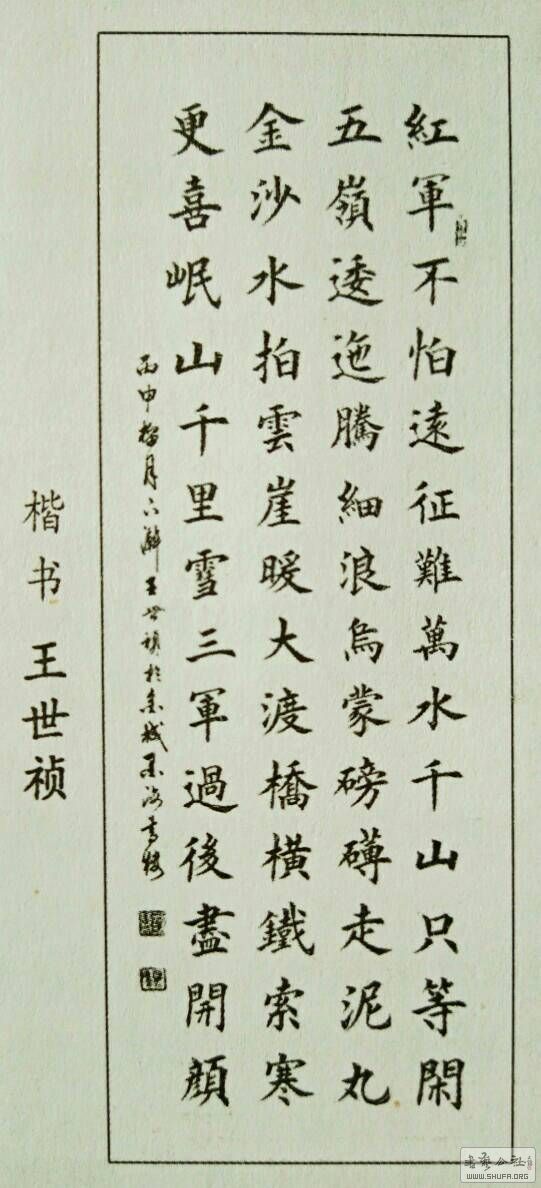 紅軍不怕遠征難萬水千山只等閑
五嶺逶迤騰細浪烏蒙磅礴走泥丸
金沙水拍雲崖暖大渡橋橫鐵索寒
更喜岷山千里雪三軍過後盡開顏
丙申榴月六澣王世禎於金城墨海書
楷书 王世祯
WWW.SHUFA.ORG